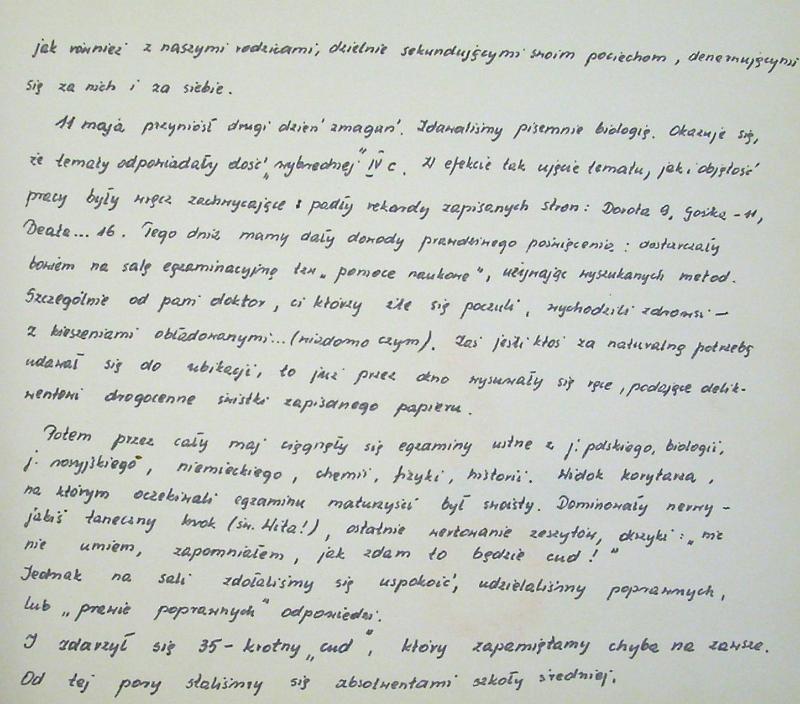 jak również z naszymi rodzicami, dzielnie sekundującymi swoim pociechom, denerwującymi
się za nich i za siebie.
11 maja przyniósł drugi dzień zmagań. Zdawaliśmy pisemnie biologię. Okazuje się,
że tematy odpowiadały dość „wybrednej" IV c. W efekcie tak ujęcie tematu, jak i objętość
pracy były wręcz zachwycające: padły rekordy zapisanych stron: Dorota 9, Gośka - 11,
Beata... 16. Tego dnia mamy dały dowody prawdziwego poświęcenia: dostarczały
bowiem na salę egzaminacyjną tzw „pomoce naukowe", używając wyszukanych metod.
Szczególnie od pani doktor, ci którzy źle się poczuli, wychodzili zdrowsi -
z kieszeniami obładowanymi... (wiadomo czym). Zaś jeśli ktoś za naturalną potrzebą
udawał się do ubikacji, to już przez okno wysuwały się ręce, podające delik-
wentowi drogocenne świstki zapisanego papieru.
Potem przez cały maj ciągnęły się egzaminy ustne z j. polskiego, biologii,
j. rosyjskiego, niemieckiego, chemii, fizyki, historii. Widok korytarza,
na którym oczekiwali egzaminu maturzyści był swoisty. Dominowały nerwy -
jakiś taneczny krok (św. Wita!), ostatnie wertowanie zeszytów, okrzyki: „nic
nie umiem, zapomniałem, jak zdam to będzie cud!"
Jednak na sali zdołaliśmy się uspokoić, udzielaliśmy poprawnych,
lub „prawie poprawnych" odpowiedzi.
I zdarzył się 35 - krotny „cud", który zapamiętamy chyba na zawsze.
Od tej pory staliśmy się absolwentami szkoły średniej.